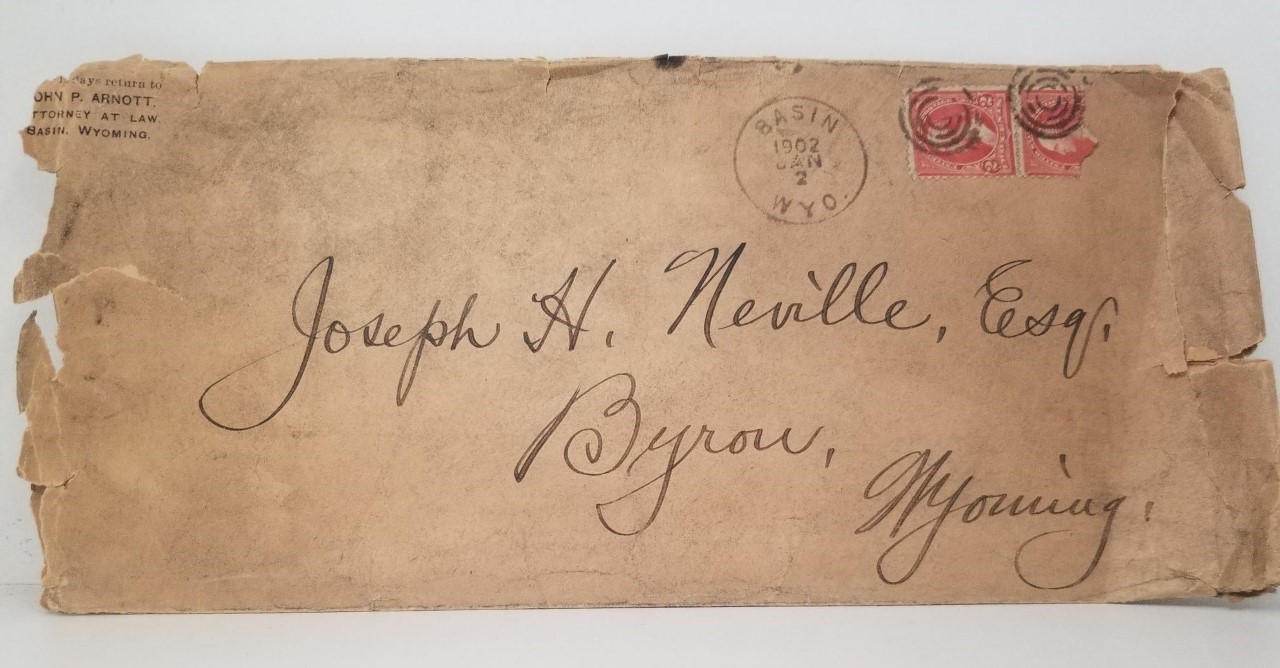 days return to
OHN P. ARNOTT,
TTORNEY AT LAW,
BASIN, WYOMING.
BASIN
1902
JAN
2
WYO.
2
2
Joseph H. Neville, Esq.
Byron,
Wyoming.